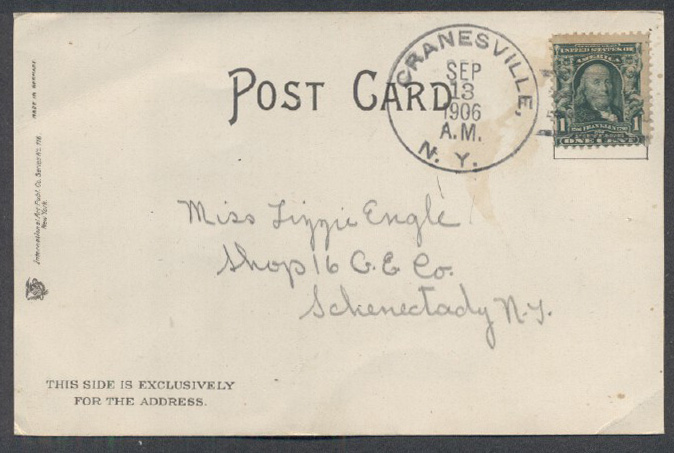 POST CARD
CRANESVILLE,
SEP
13
1906
A.M.
N. Y.
UNITED STATES OF
AMERICA
1 FRANKLIN 1
ONE CENT
Miss Lizzie Engle
Shop 16 G. E. Co.
Schenectady N. Y.
THIS SIDE IS EXCLUSIVELY
FOR THE ADDRESS.
MADE IN GERMANY.
International Art Publ. Co.
New York.